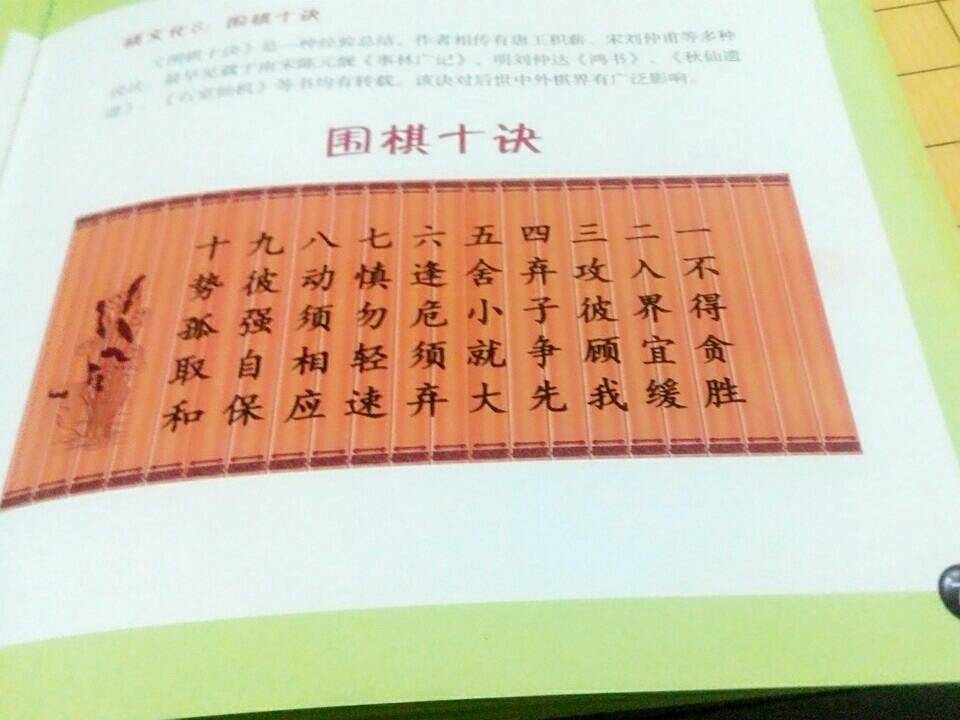 棋文化8：围棋十诀
《围棋十诀》是一种经验总结，作者相传有唐王积薪、宋刘仲甫等多种
说法，最早见载于南宋陈元靓《事林广记》，明刘仲达《鸿书》、《秋仙遗
谱》、《石室仙机》等书均有转载。该诀对后世中外棋界有广泛影响。
围棋十诀
一不得贪胜
二入界宜缓
三攻彼顾我
四弃子争先
五舍小就大
六逢危须弃
七慎勿轻速
八动须相应
九彼强自保
十势孤取和